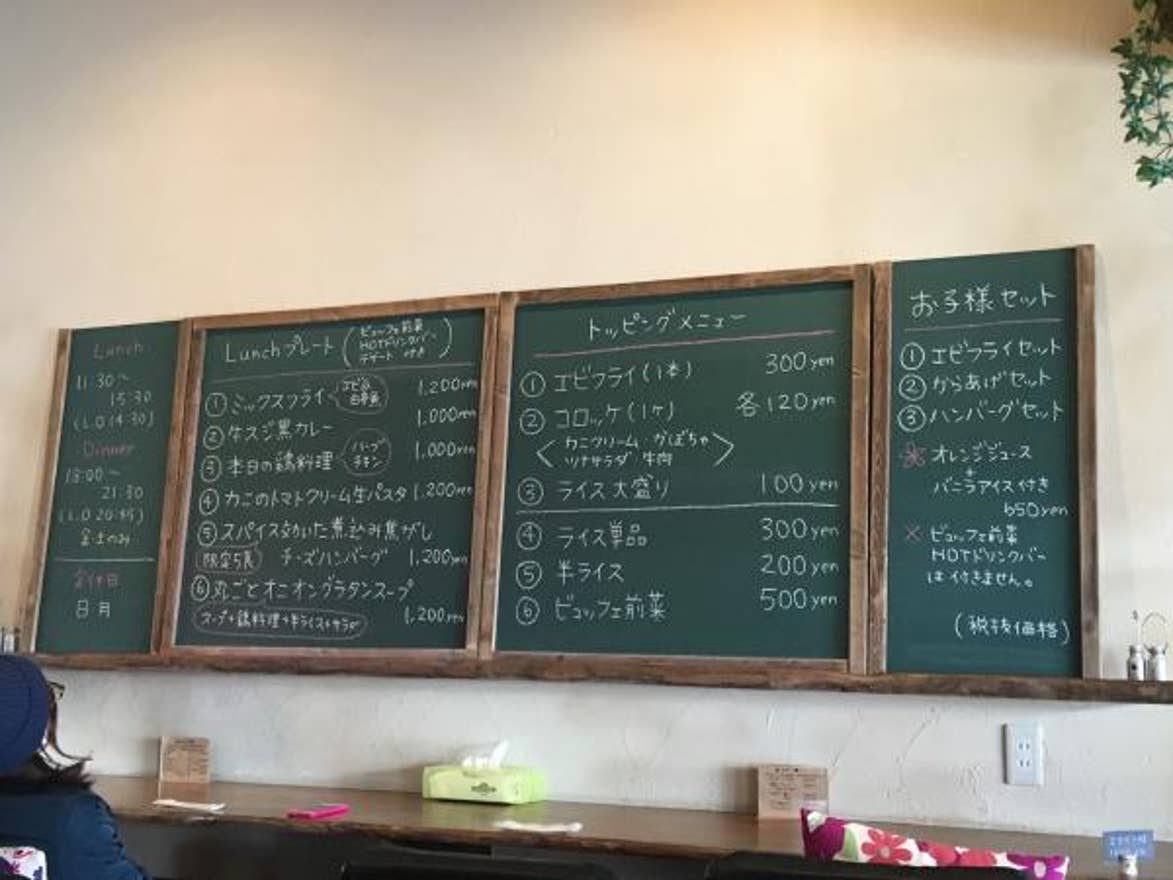 Lunch
11:30～
15:30
(L.O 14:30)
Dinner
18:00～
21:30
(L.O 20:45)
金土のみ
定休日
日月
Lunchプレート
ビュッフェ前菜
HOTドリンクバー
デザート付き
①ミックスフライ
1,200yen
②牛スジ黒カレー 1,000yen
③本日の鶏料理 ハーブチキン 1,000yen
④カニのトマトクリーム生パスタ 1,200yen
⑤スパイス効いた煮込み焦がし
限定5食 チーズハンバーグ 1,200yen
⑥丸ごとオニオングラタンスープ
スープ+鶏料理+半ライス+サラダ 1,200yen
トッピングメニュー
①エビフライ(1本) 300yen
②コロッケ(1ヶ) 各120yen
カニクリーム・かぼちゃ
ツナサラダ・牛肉
③ライス大盛り 100yen
④ライス単品 300yen
⑤半ライス 200yen
⑥ビュッフェ前菜 500yen
お子様セット
①エビフライセット
②からあげセット
③ハンバーグセット
※オレンジジュース
+
バニラアイス付き
650yen
※ビュッフェ前菜
HOTドリンクバー
は付きません。
(税抜価格)